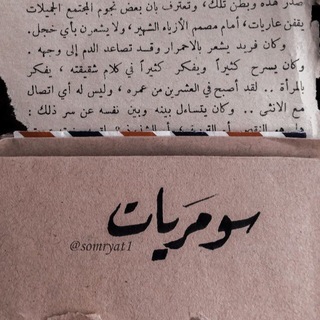 صدر هذه وبطن تلك، وتعترف بأن بعض نجوم المجتمع الجميلات
يقفن عاريات، أمام مصمم الأزياء الشهير، ولا يشعرن بأي خجل.
وكان فريد يشعر بالاحمرار وقد تصاعد الدم إلى وجهه .
وكان يسرح كثيراً ويفكر كثيراً في كلام شقيقته ، يفكر
بالمرأة .. لقد أصبح في العشرين من عمره ، وليس له أي اتصال
مع الانثى .. وكان يتساءل بينه وبين نفسه عن سر ذلك :
سومريات
@somryat1